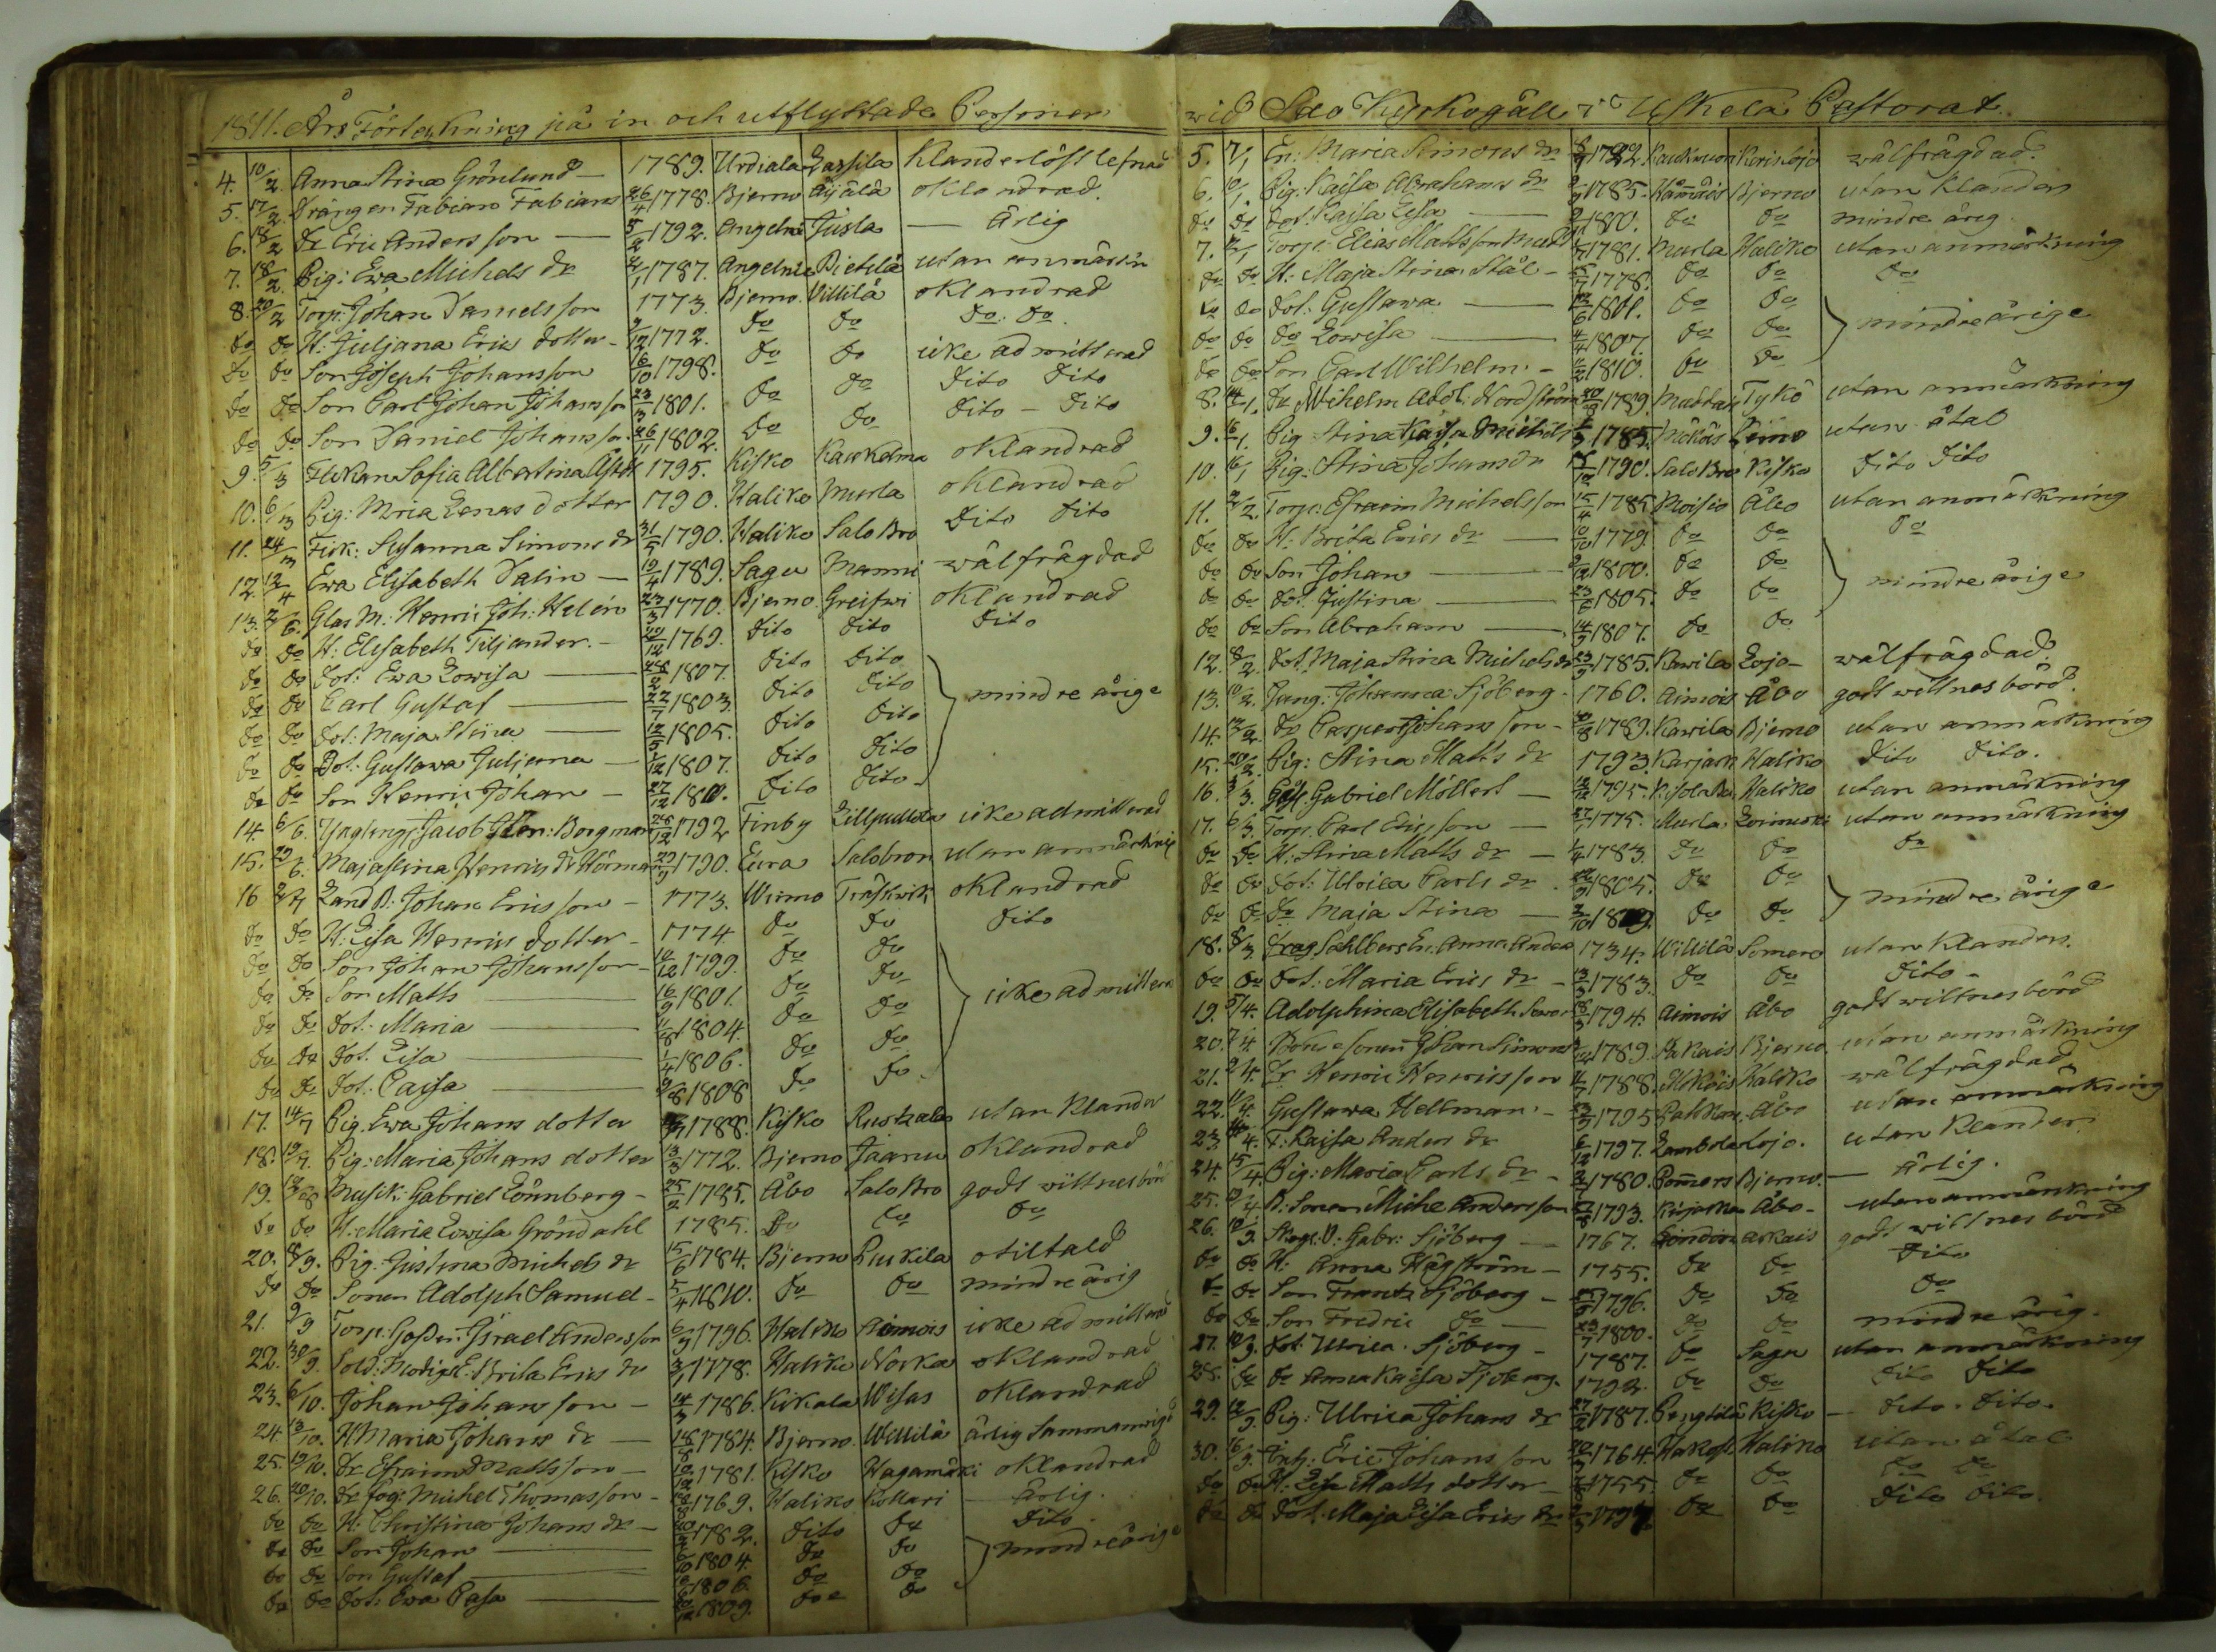 1811. Års Förtekning på in och utflyttade Personer
4. 10/2. Anna Stina Grönlund — 1789. Urdiala Lassila Klanderlöst lefnad
5. 17/2. Drängen Fabian Fabians 26/4 1778. Bjerno Äijälä oklandrad.
6. 18/2 Dr Eric Andersson — 5/2 1792. Angelnie Justa — Ärlig
7. 18/2. Pig: Ewa Michels dr 1787. Angelnie Pietilä utan anmärkn
8. 20/2 Torp: Johan Danielsson 1773. Bjerno Villilä oklandrad
do do H: Juljana Erics dotter - 9/12 1772. do do do. do.
do do Son Joseph Johansson 6/10 1798. do do icke admitterad
do do Son Carl Johan Johansson 23/3 1801. do do dito dito
do do Son Daniel Johansson 26/11 1802. do do dito - dito
9. 5/3 Flickan Sofia Albertina 1795. Kisko Kaukelma oklandrad
10. 6/3 Pig: Maria Lenas dotter 1790. Haliko Murla oklandrad
11. 24/3 Fick: Susanna Simons dr 31/5 1790. Haliko Salo Bro dito dito
12. 12/4 Ewa Elisabeth Dalin — 19/4 1789. Sagu Manni wälfrägdad
13. 2/6. Glas M. Henric Joh. Helén 27/3 1770. Bjerno Greifwi oklandrad
do do H: Elisabeth Tiljander. - 1769. dito dito dito
do do Dot: Ewa Lowisa — 28/2 1807. dito dito
do do Carl Gustaf — 22/7 1803. dito dito mindre årige
do do Dot: Maja Stina — 1805. dito dito
do do Dot. Gustawa Juljana — 1807. dito dito
do do Son Henric Johan — 27/12 dito dito
14 6/6. Yngling Jacob Borgman 1792 Finby icke admitterad
15. 29/6. Maja Stina Henrics dr 29/9 1790. Eura Salobron utan anmärkni
16 2/7 Land B: Johan Ericsson - 1773. Wirmo Träskwik oklandrad
do do H: Lisa Henrics dotter - 1774. do do dito
do do Son Johan Johansson - 10/12 1799. do do
do do Son Matts — 16/9 1801. do do icke admittera
do do Dot: Maria — 1804. do do
do do Dot. Lisa — 1/4 1806. do do
do do Dot. Caisa — 9/8 1808 do do
17. 14/7 Pig. Ewa Johans dotter 1788. Kisko utan klander
18. 19/7. Pig: Maria Johans dotter 13/3 1772. Bjerno Jaanu oklandrad
19. Musik: Gabriel Lönnberg - 25/2 1785. Åbo Salo Bro godt wittnesbörd
do do H: Maria Lowisa Gröndahl 1785. do do do
20. 8/9. Pig: Justina Michels dr 15/6 1784. Bjerno Puckila otiltald
do do Sonen Adolph Samuel - 5/4 1810. do do mindre årig
21. 9/9 Torp: Goss: Israel Andersson 6/9 1796. Haliko Aimois icke admitterad
22. 30/9. Sold: Modigs E. Brita Erics dr 3/1 1778. Haliko Norka oklandrad
23. 6/10. Johan Johansson - 14/3 1786. Kikala Wisas oklandrad
24. 13/10. H Maria Johans dr — 18/8 1784. Bjerno Willilä ärlig Sammanvigd
25. 19/10. Dr Efraim Mattsson — 1781. Kisko Hagamäki oklandrad
26. 20/10. Dr fog: Michel Thomasson - 1769. Haliko Kollari — Ärlig.
do do H: Christina Johans dr — 1782. dito do dito.
do do Son Johan — 1804. do do
do do Son Gustaf — 1806. do do mindreårige
do do Dot: Ewa Casa — 1809. do do
wid Salo Kyrkogäll i Uskela Pastorat.
5. 7/1 En: Maria Simons dr 1722 Korislojo wälfrägdad.
6. 10/1. Pig: Kajsa Abrahams dr 1785. Hämäis Bjerno utan klander
do do Dot. Kajsa Lisa — 1800. do do mindre årig
7. Torp: Elias Mattsson 1781. Murla Haliko utan anmärkning
do do H: Maja Stina Stål - 1778. do do do
do do Dot: Gustawa — 12/6 1801. do do
do do do Lowisa — 4/4 1807. do do mindreårige
do do Son Carl Wilhelm. - 1810. do do
8. 14/1. Dr Wilhelm Adol. Nordström 1789. Tyko utan anmärkning
9. 16/1. Pig Stina Kajsa Michels 1785. utan åtal
10. 16/1 Pig: Stina Johans dr 1790. Salo Bro Kisko dito dito
11. 2/2. Torp: Efraim Michelsson 15/4 1785 Moisio Åbo utan anmärkning
do do H: Brita Erics dr — 10/10 1779. do do do
do do Son Johan — 1800. do do
do do Dot. Justina — 23/6 1805. do do mindre årige
do do Son Abraham — 14/9 1807. do do
12. 8/2. Dot. Maja Stina Michels dr 1785. Kawila Lojo - wälfrägdad.
13. 10/2. Jung: Johanna Sjöberg. 1760. Aimois Åbo godt wittnesbörd.
14. 12/2. Dr Casper Johansson - 1789. Kawila Bjerno utan anmärkning
15. 20/2. Pig: Stina Matts dr 1793. Karjask Haliko dito dito.
16. 3/3. Gabriel Möllert — 1795. Haliko utan anmärkning
17. 6/3. Torp. Carl Ericsson — 1775. Murla utan anmärkning
do do H: Stina Matts dr — 1/4 1783. do do do
do do Dot: Ulrica Carls dr - 1805. do do
do do do Maja Stina — do do mindre årige
18. 8/3 Anna Anders 1734. Willilä Somero utan klander.
do do Dot: Maria Erics dr - 13/3 1783. do do dito -
19. 5/4. Adolphina Elisabeth 18/3 1794. Aimois Åbo godt wittnesbörd
20. 7/4 Johan Simons 1789. Bjerno. utan anmärkning
21. 9/4. Dr Henric Henricsson 1788. Haliko wälfrägdad
22. 11/4. Gustawa Hellman. - 1795 Åbo utan anmärkning
23. 4. F: Kaisa Anders dr 6/12 1797. Lojo. utan klander.
24. 15/4. Pig: Maria Carls dr - 1780. Bjerno. — ärlig.
25. B: Sonen Mich: Andersson 1793. Åbo - utan anmärkning
26. Gabr: Sjöberg — 1767. askais godt wittnesbörd
do do H: Anna Hägström — 1755. do do dito
do do Son Frantz Sjöberg - 1796. do do do
do do Son Fredric do — 1800. do do mindre årig.
27. Dot. Ulrica Sjöberg - 1787. do Sagu utan anmärkning
28. do do Anna Kaisa Sjöberg. 1792. do do dito dito
29. Pig: Ulrica Johans dr 1787. Pengtilä Kisko — dito. dito.
30. Eric Johansson 1764. Haliko utan åtal
do do H: Lisa Matts dotter — 1755. do do do do
do do Dot. Maja Lisa Erics dr do do dito dito.